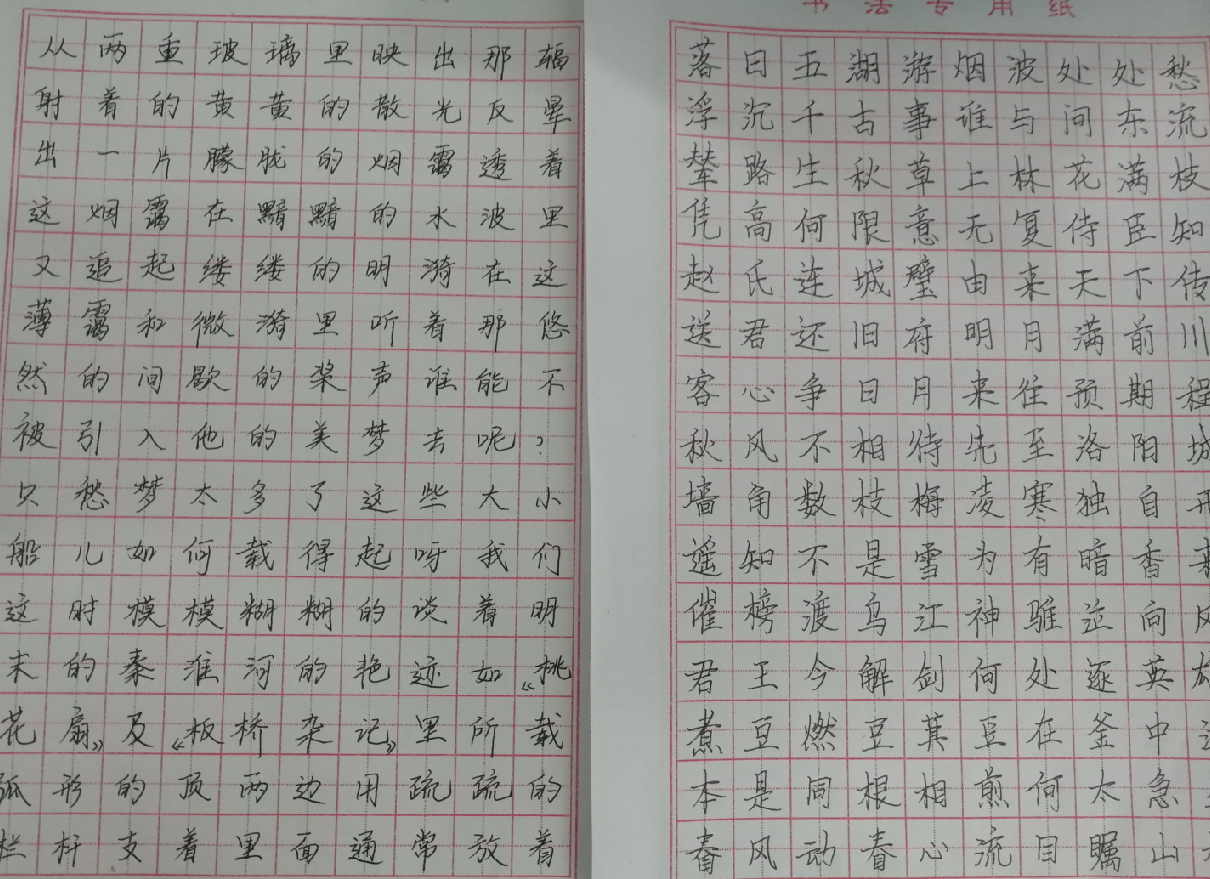 从两重玻璃里映出那辐
射着的黄黄的散光反晕
出一片朦胧的烟霭透着
这烟霭在黯黯的水波里
又追起缕缕的明漪在这
薄霭和微漪里听着那悠
然的间歇的桨声谁能不
被引入他的美梦去呢?
只愁梦太多了这些大小
船儿如何载得起呀我们
这时模模糊糊的谈着明
末的秦淮河的艳迹如《桃
花扇》及《板桥杂记》里所载
弧形的顶两边用疏疏的
栏杆支着里面通常放着
书法专用纸
落日五湖游烟波处处愁
浮沉千古事谁与问东流
辇路生秋草上林花满枝
凭高何限意无复侍臣知
赵氏连城璧由来天下传
送君还旧府明月满前川
客心争日月来往预期程
秋风不相待先至洛阳城
墙角数枝梅凌寒独自开
遥知不是雪为有暗香来
催榜渡乌江神骓泣向风
君王今解剑何处逐英雄
煮豆燃豆萁豆在釜中
本是同根相煎何太急
春风动春心流目瞩山